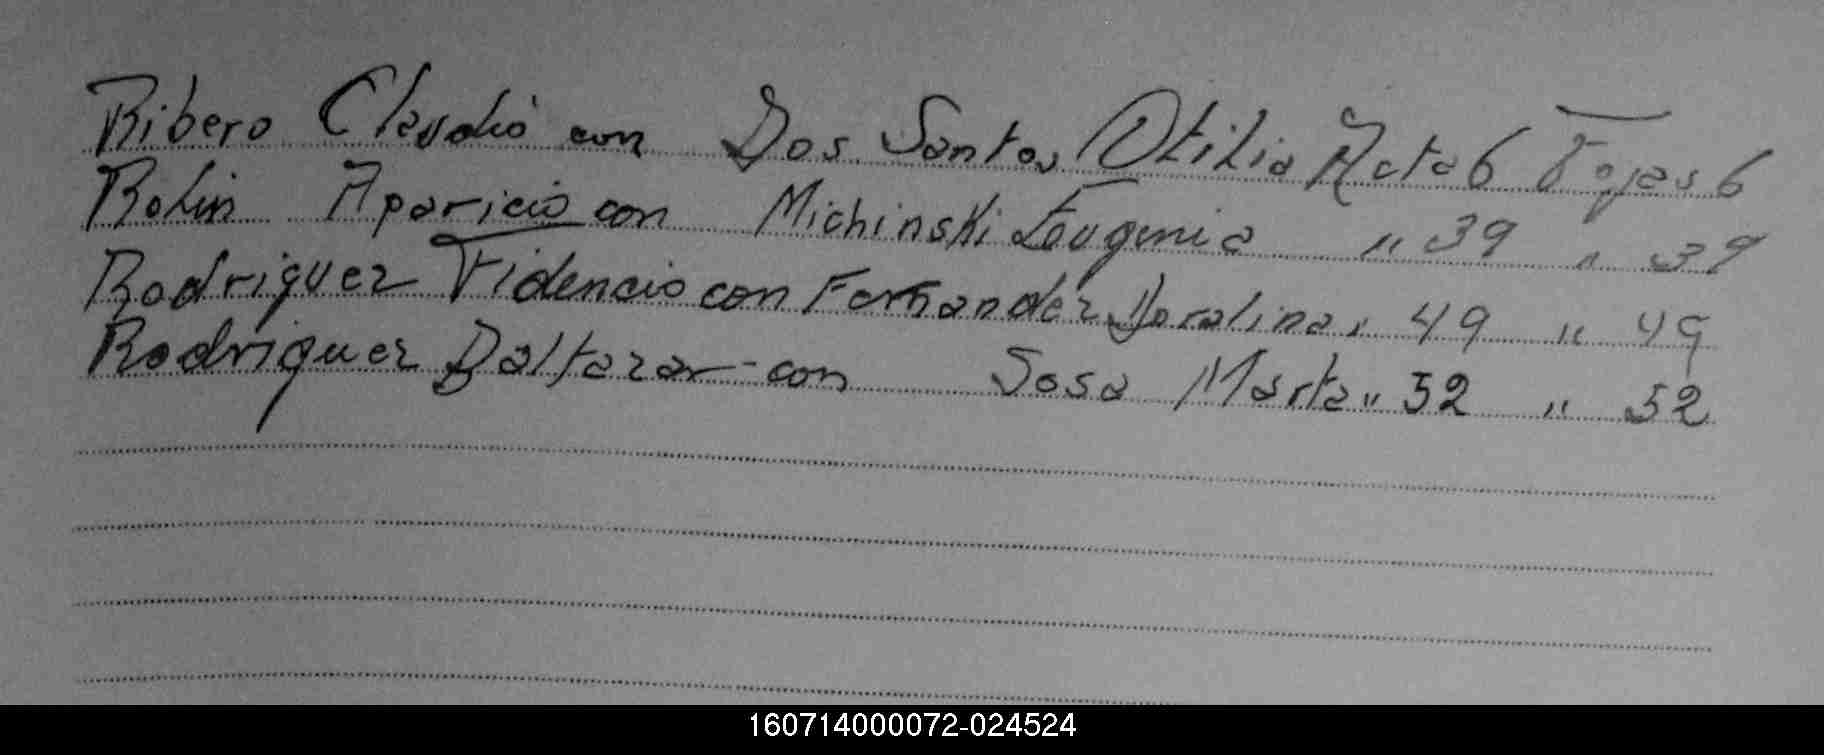 Ribero Claudio con Dos Santos Otilia Acta 6 Fojas 6
Rolin Aparicio con Michinski Eougenia " 39 " 39
Rodriguez Fidencio con Fernandez Doralina " 49 " 49
Rodriguez Baltazar - con Sosa Marta " 52 " 52
160714000072-024524